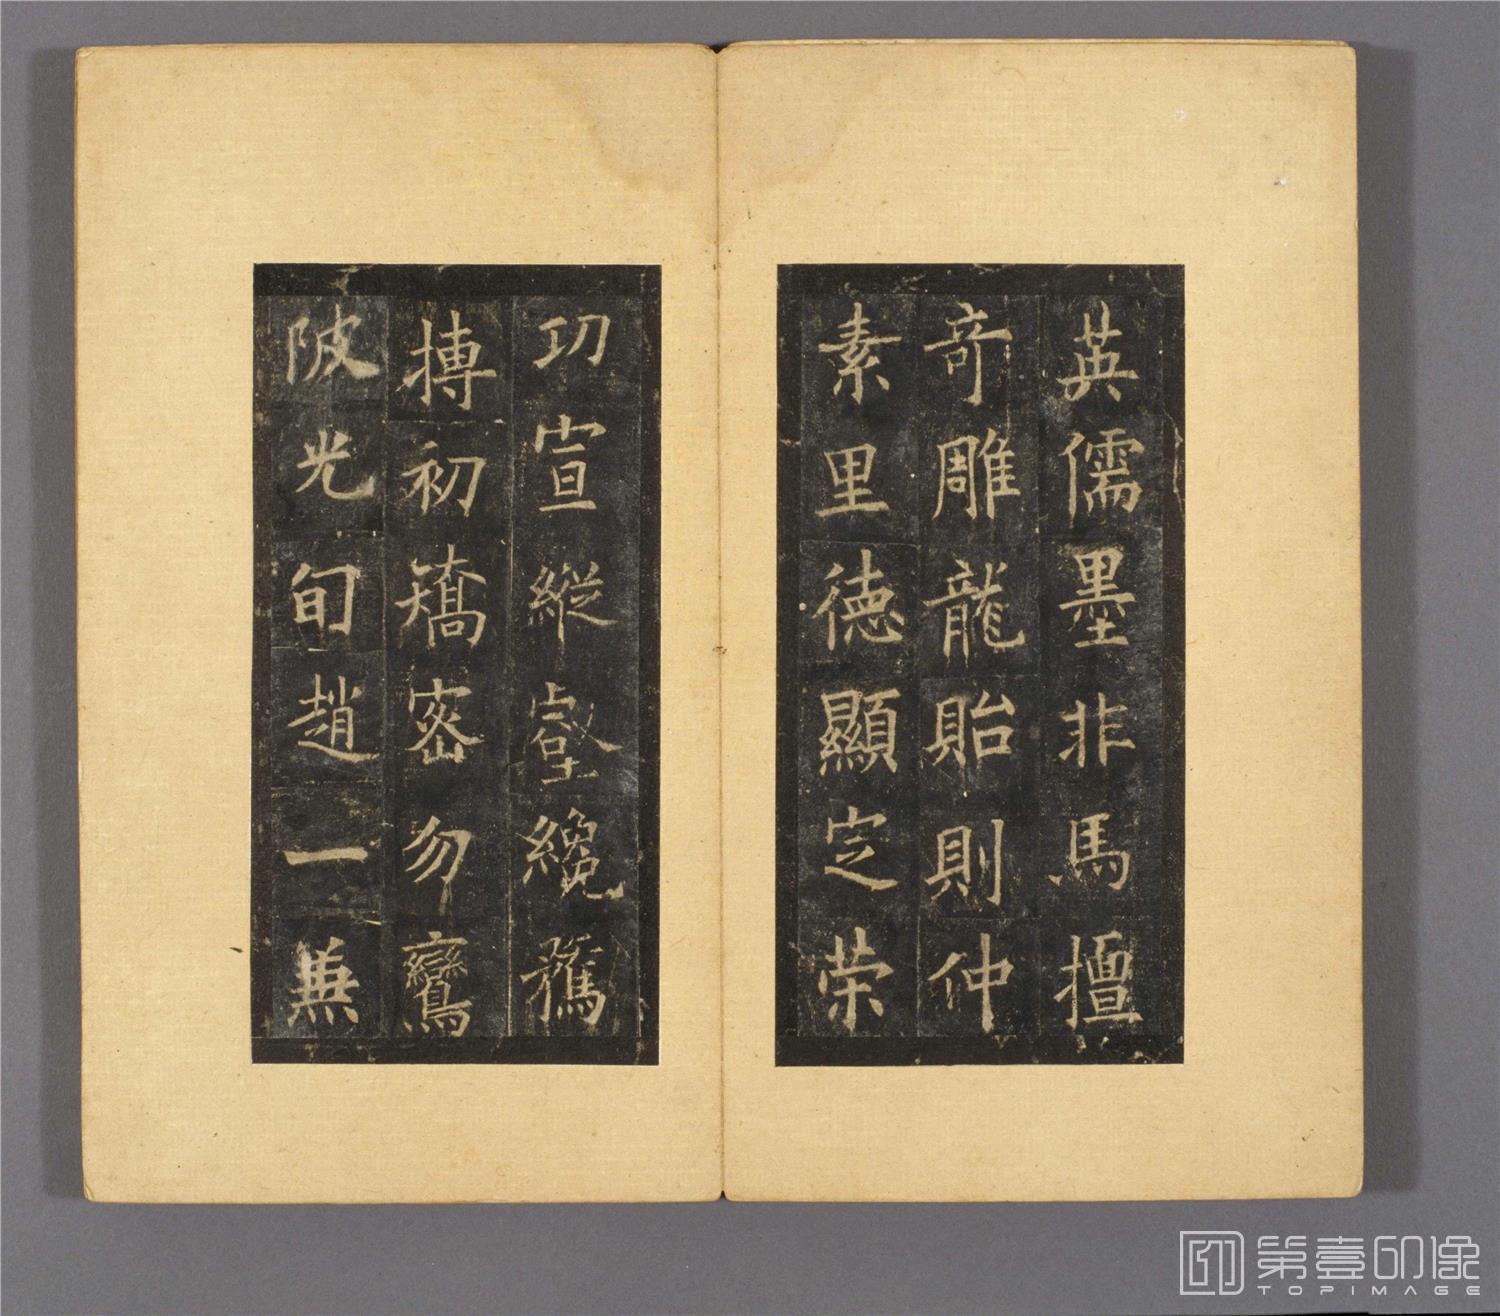 英儒墨非馬擅
奇雕龍貽則仲
素里德顯定荣
功宣縱壑纔鶱
搏初矯密勿鸞
陂光旬趙一兼
第壹印像
TOPIMAGE